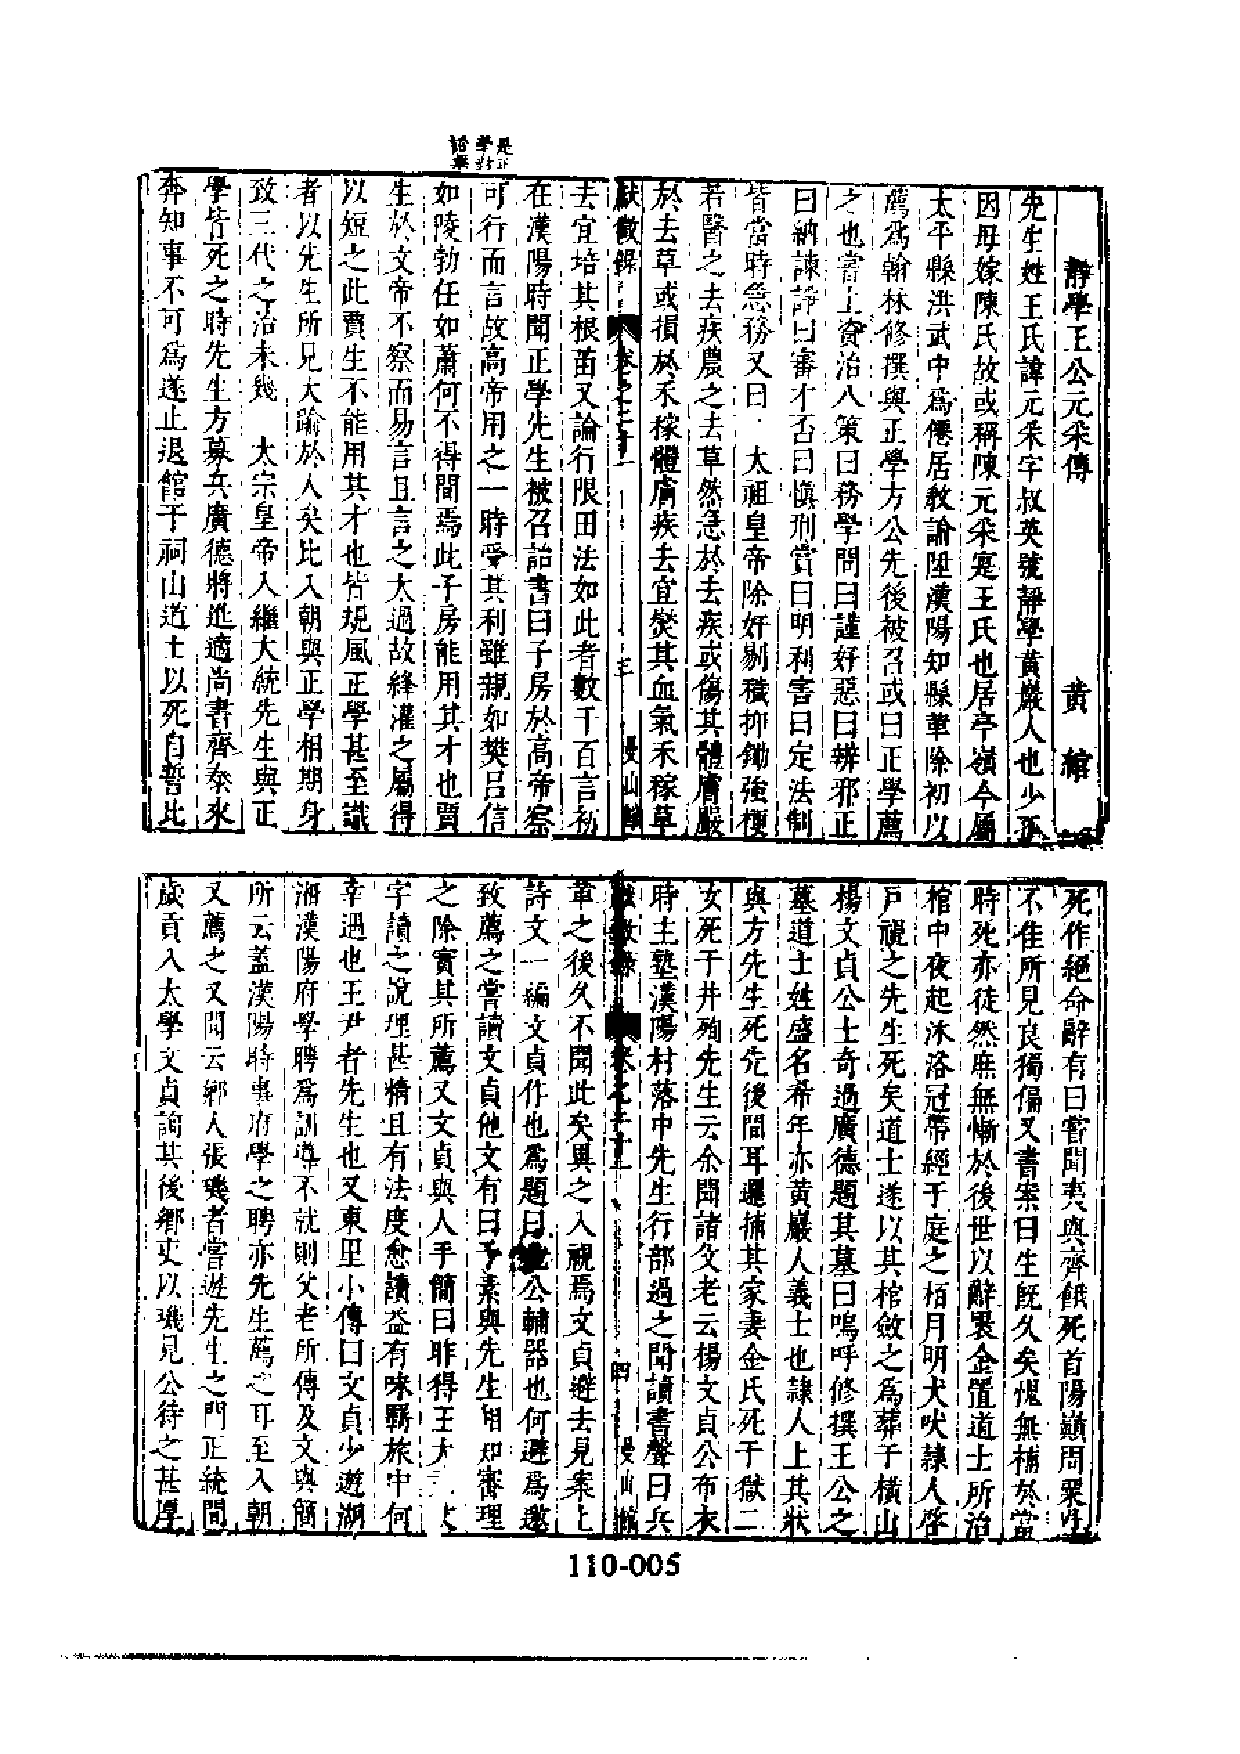 是正
學對
詒業
靜學王公元采傳 黃綰
先生姓王氏諱元采字叔英號靜學黃巖人也少孤
因母嫁陳氏故或稱陳元采寔王氏也居亭嶺今屬
太平縣洪武中爲僊居敎諭陞漢陽知縣革除初以
薦爲翰林修撰與正學方公先後被召或曰正學薦
之也嘗上資治八策曰務學問曰謹好惡曰辨邪正
曰納諫諍曰審才否曰愼刑賞曰明利害曰定法制
皆當時急務又曰 太祖皇帝除奸剔穢抑鋤強梗
若醫之去疾農之去草然急於去疾或傷其體膚嚴
於去草或損於禾稼體膚疾去宜燮其血氣禾稼草
獻徵錄 卷之二十 曼山館
去宜培其根苗又論行限田法如此者數千百言初
在漢陽時聞正學先生被召詒書曰子房於高帝察
可行而言故高帝用之一時受其利雖親如樊呂信
如陵勃任如蕭何不得間焉此子房能用其才也賈
生於文帝不察而易言且言之太過故絳灌之屬得
以短之此賈生不能用其才也皆規風正學甚至識
者以先生所見大踰於人矣比入朝與正學相期身
致三代之治未幾 太宗皇帝入繼大統先生與正
學皆死之時先生方募兵廣德將進適尚書齊泰來
奔知事不可爲遂止退館于祠山道士以死自誓比
死作絕命辭有曰嘗聞夷與齊餓死首陽巔周粟
不佳所見良獨偏又書案曰生旣久矣愧無補於當
時死亦徒然庶無慚於後世以辭裹金置道士所治
棺中夜起沐浴冠帶經于庭之栢月明犬吠隸人啓
戶視之先生死矣道士遂以其棺斂之爲葬于橫山
楊文貞公士奇過廣德題其墓曰嗚呼修撰王公之
墓道士姓盛名希年亦黃巖人義士也隸人上其狀
與方先生死先後間耳邏捕其家妻金氏死于獄二
女死于井殉先生云余聞諸父老云楊文貞公布衣
時主塾漢陽村落中先生行部過之聞讀書聲曰兵
獻徵錄 卷之二十 四 曼山館
革之後久不聞此矣異之入視焉文貞避去見案上
詩文一編文貞作也爲題曰 公輔器也何避爲邀
致薦之嘗讀文貞他文有曰予素與先生相知審理
之除實其所薦又文貞與人手簡曰昨得王大
字讀之說理甚精且有法度愈讀益有味覊旅中何
幸遇也王尹者先生也又東里小傳曰文貞少遊湖
湘漢陽府學聘爲訓導不就則父老所傳及文與簡
所云蓋漢陽時事府學之聘亦先生薦之耳至入朝
又薦之又聞云鄉人張璣者嘗遊先生之門正統間
歲貢入太學文貞詢其後鄉吏以璣見公待之甚厚
110-005